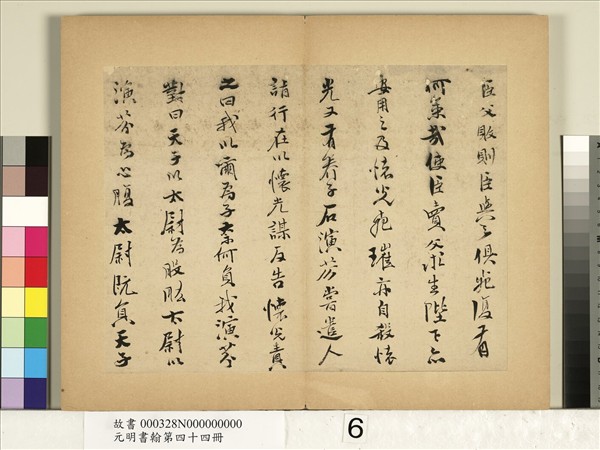 臣父敗則臣與之俱死復有
何策哉使臣賣父求生陛下亦
安用之及懷光死璀亦自殺懷
光又有養子石演芬嘗遣人
詣行在以懷光謀反告懷光責
之曰我以爾為子奈何負我演芬
對曰天子以太尉為股肱太尉以
演芬為心腹太尉既負天子
故書 000328N000000000
元明書翰第四十四冊
6